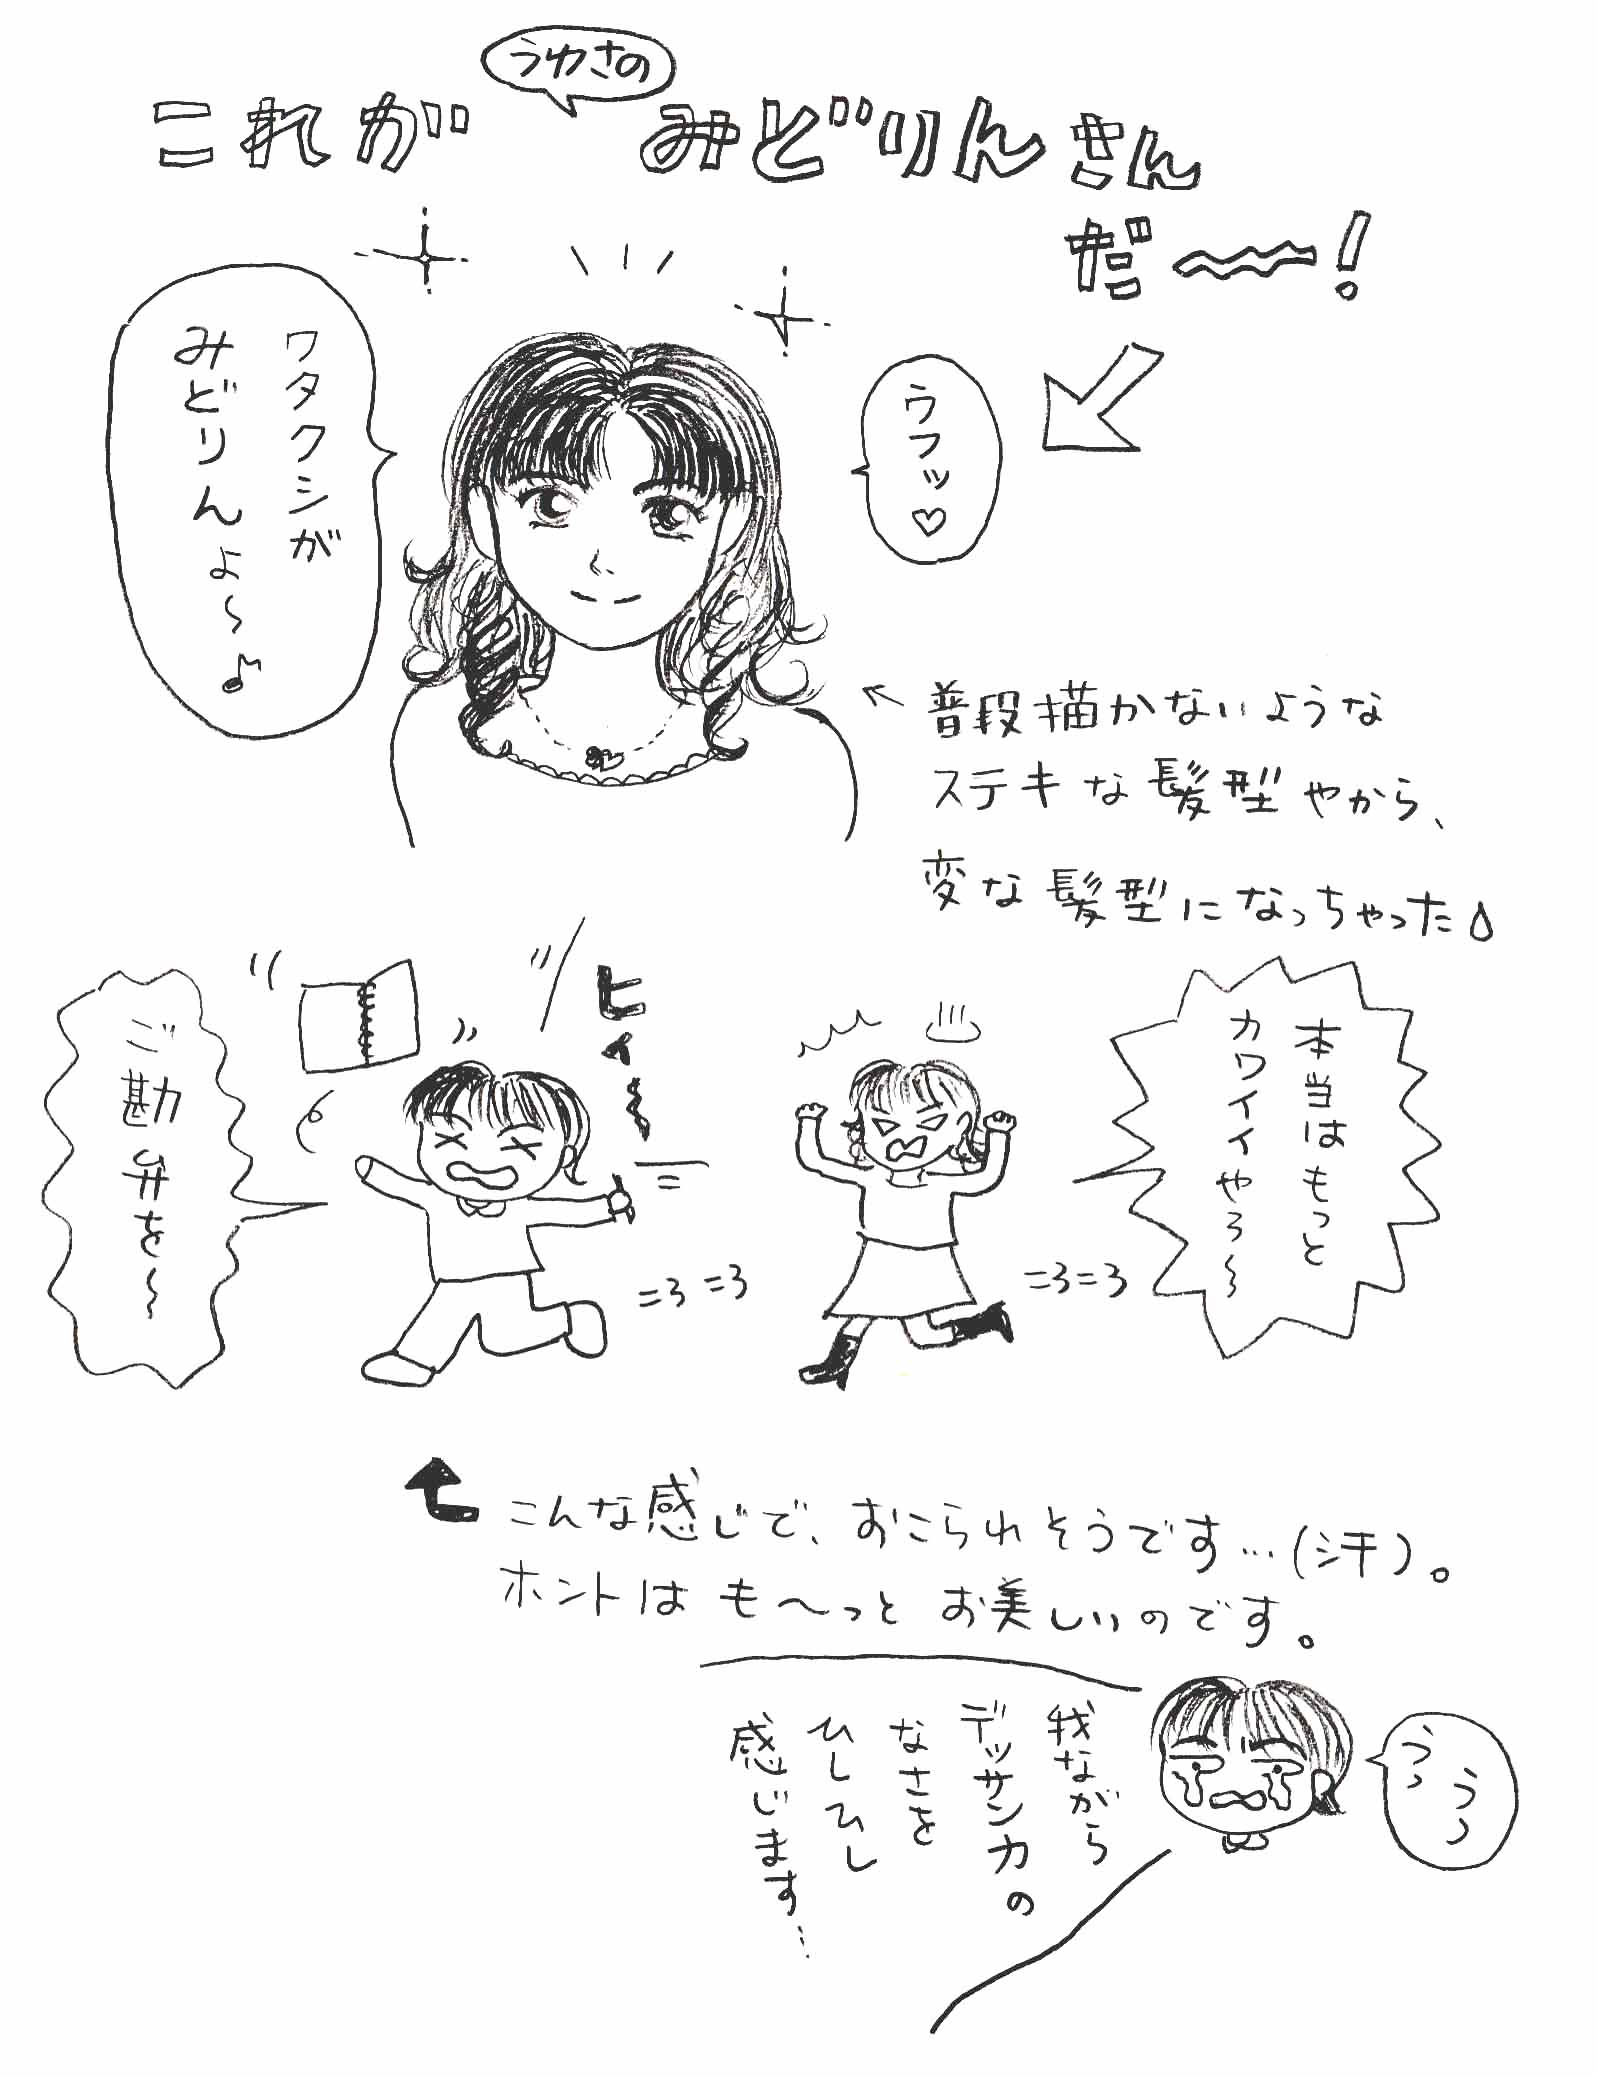 うわさの
これが みどりんさん
だ〜!
ワタクシが
みどりんよ〜♪
ウフッ♡
←普段描かないような
ステキな髪型やから、
変な髪型になっちゃった
ヒィ〜
ご勘弁を〜
本当はもっと
カワイイやろ〜
こんな感じで、おこられそうです…(汗)。
ホントは も〜っと お美しいのです。
我ながら
デッサン力の
なさを
ひしひし
感じます…
うぅ
うぅ